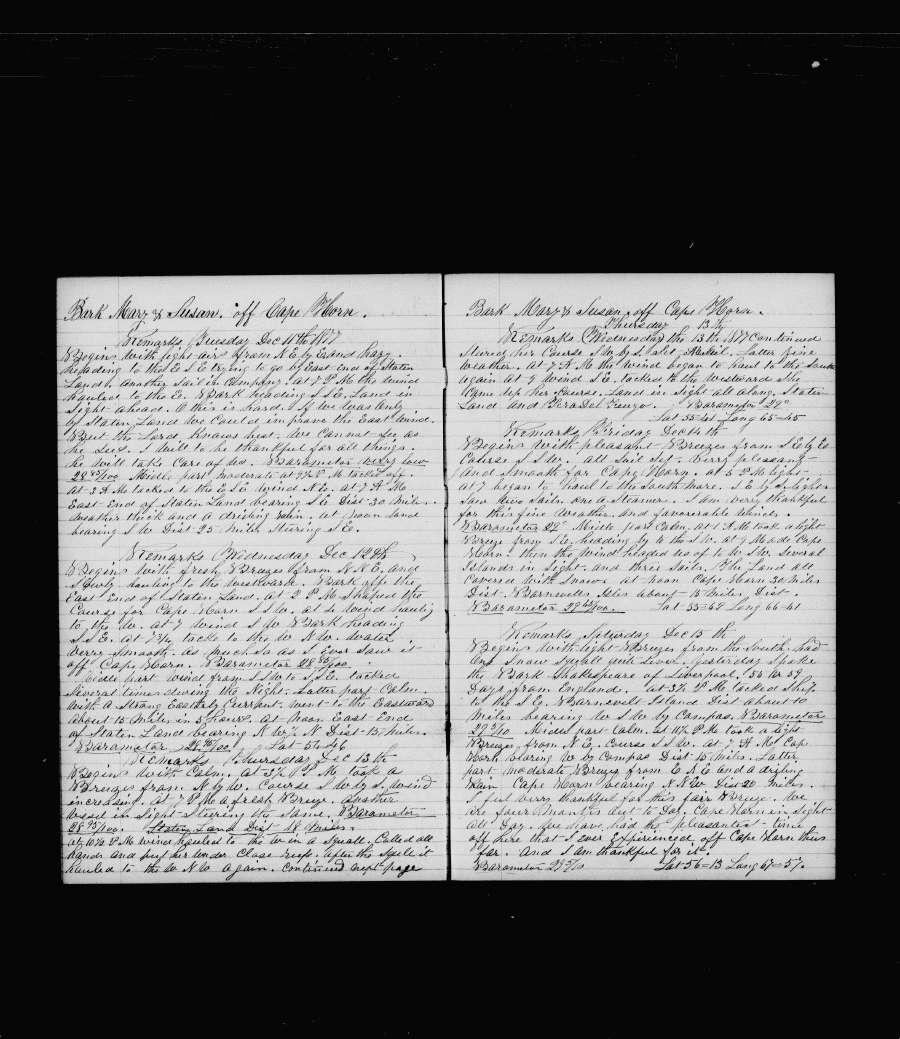 Bark Mary & Susan. off Cape Horn.
Remarks Tuesday Dec 11th 1877
Begins with light airs from N E by E and hazy.
heading to the E S E trying to go by East end of Staten
Land. another Sail in Company. at 7 P M the wind
hauled to the E. Bark heading S S E. Land in
Sight ahead. O this is hard. If we was only
by Staten Land we could improve the East wind.
But the Lord Knows best. We cannot See as
he Sees. I will to be thankful for all things.
he will take Care of us. Barameter very low
Middle part moderate at P M tacked off.
at 3 A M tacked to the E S E wind N E. at 7 A M
East End of Staten Land bearing S E Dist 30 Miles.
weather thick and a drisling rain. at Noon Land
bearing S W Dist 25 Miles Stering S E.
Remarks Wednesday Dec 12th
Begins with fresh Breezes from N N E. and
Slowly hauling to the Westward. Bark off the
East End of Staten Land. at 2 P M Shaped the
Course for Cape Horn S S W. at 4 wind hauling
to the W. at 7 wind S W Bark heading
S S E. at 7 1/2 tacks to the W N W. water
verry Smooth. as much So as I Ever Saw it
off Cape Horn. Barameter 28 85/100.
Middle part wind from S W to S S E. tacked
Several times during the Night. Latter part Calm.
With a Strong Easterly Currant. went to the Eastward
about 15 Miles in 5 hours. at Noon East End
of Staten Land bearing N W 1/2 N Dist 15 Miles.
Barameter 28 90/100. Lat 54=46
Remarks Thursday Dec 13th
Begins with Calm. at 3 1/2 P M took a
Breeze from N by W. Course S W by S. wind
increasing. at 7 P M a fresh Breeze. another
vessel in Sight Stering the Same. Barameter
28 95/100. Staten Land Dist 18 Miles.
at 10 1/2 P M wind hauled to the W in a Squall. Called all
hands and put her under Close Reefs. after the Squall it
hauled to the W N W again. Continued next page
Bark Mary & Susan. off Cape Horn.
Thursday 13th
Remarks Wednesday the 13th 1877 Continued
Stered her Course S W by S. Latter fine
weather. at 7 A M the wind began to haul to the South
again at 9 wind S E. tacked to the Westward She
Came up her Course. Land in Sight all along. Staten
Land and Tera Del Fuego. Barameter 29°
Lat 55=41 Long 65=45
Remarks Friday Dec 14th
Begins with pleasant Breezes from S E by E
Course S S W. all Sail Set. verry pleasant
and Smooth for Cape Horn. at 5 P M light
at 7 began to haul to the South more. S E by S. light
Saw two Sails. one a Steamer. I am verry thankful
for this fine weather. and favourable winds.
Barameter 29° Middle part Calm. at 1 A M took a light
Breeze from S E. heading up to the S W. at 9 Made Cape
Horn. then the wind headed us of to W S W. Several
Islands in Sight. and three Sails. The Land all
Covered with Snow. at Noon Cape Horn 30 Miles
Dist. Barnevelts Isles about 15 Miles Dist.
Barameter Lat 55=48 Long 66=41
Remarks Saturday Dec 15th
Begins with light Breezes from the South. had
one Snow Squall quite Sever. yesterday Spoke
the Bark Shakespeare of Liverpool.
Days from England. at 3 1/2 P M tacked Ship.
to the S E. Barnevelt Island Dist about 10
Miles bearing W S W by Compas. Barameter
Middle part Calm. at 11 1/2 P M took a light
Breeze from N E. Course S S W. at 7 A M. Cape
Horn baring W by Compas Dist 15 Miles. Latter
part moderate Breezes from E N E and a drisling
Rain Cape Horn bearing N N W Dist 20 Miles.
I feel verry thankful for this fair Breeze. We
are four Months out to Day. Cape Horn in Sight
all Day. we have had the pleasantest time
off here that I ever Experienced off Cape Horn thus
far. And I am thankful for it.
Barameter Lat 56=13 Long 67=57